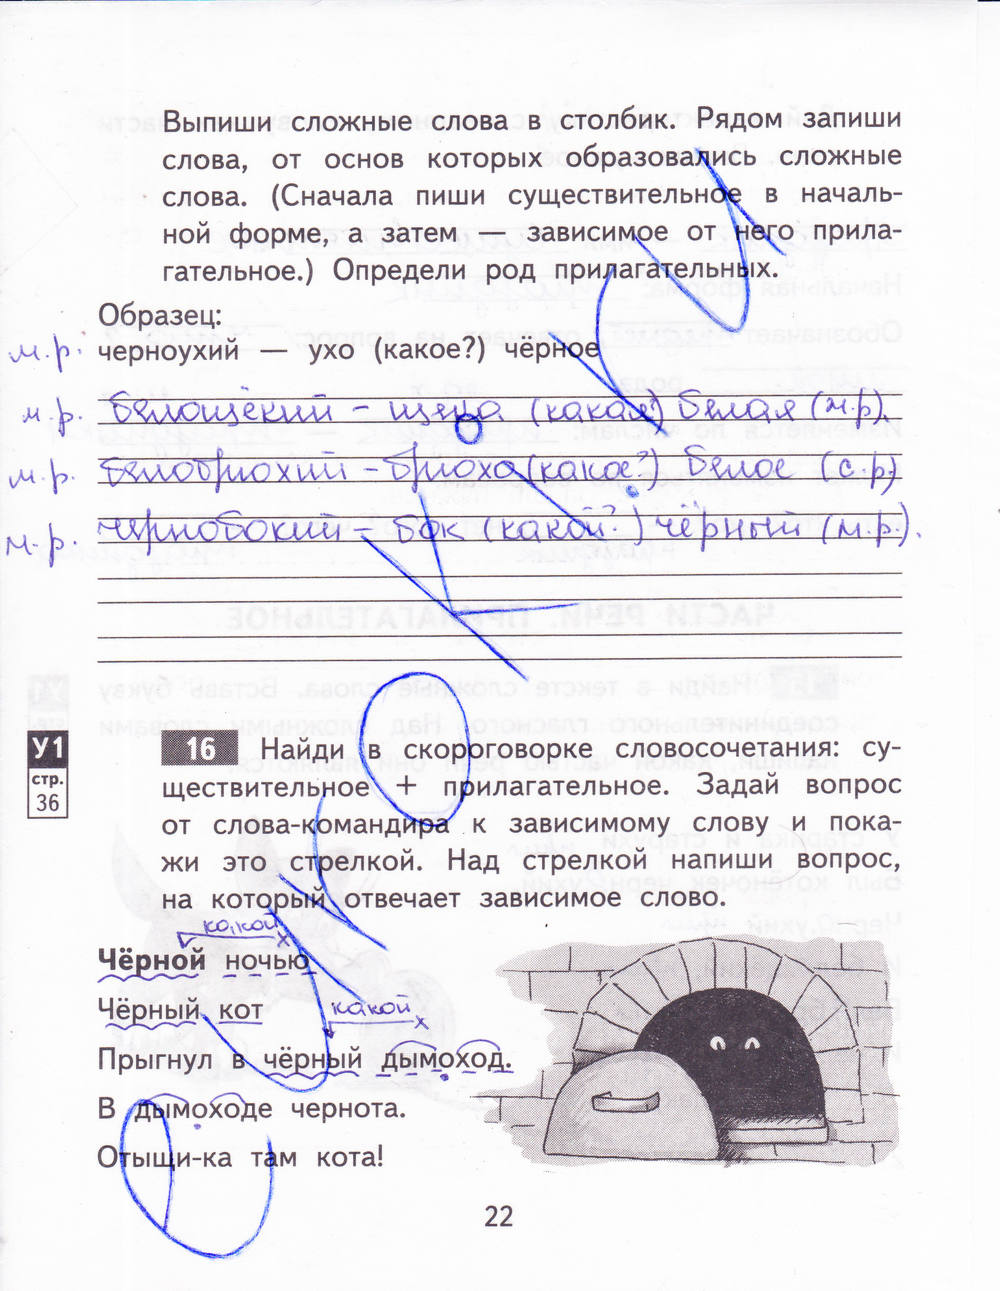 Выпиши сложные слова в столбик. Рядом запиши
слова, от основ которых образовались сложные
слова. (Сначала пиши существительное в началь-
ной форме, а затем — зависимое от него прила-
гательное.) Определи род прилагательных.
Образец:
м.р. черноухий — ухо (какое?) чёрное
м.р. белощёкий – щека (какая?) белая (м.р).
м.р. белобрюхий – брюхо (какое?) белое (с.р)
м.р. чернобокий – бок (какой?) чёрный (м.р).
У1
стр.
36
16 Найди в скороговорке словосочетания: су-
ществительное + прилагательное. Задай вопрос
от слова-командира к зависимому слову и пока-
жи это стрелкой. Над стрелкой напиши вопрос,
на который отвечает зависимое слово.
какой х
Чёрной ночью
Чёрный кот
какой х
Прыгнул в чёрный дымоход.
В дымоходе чернота.
Отыщи-ка там кота!
22